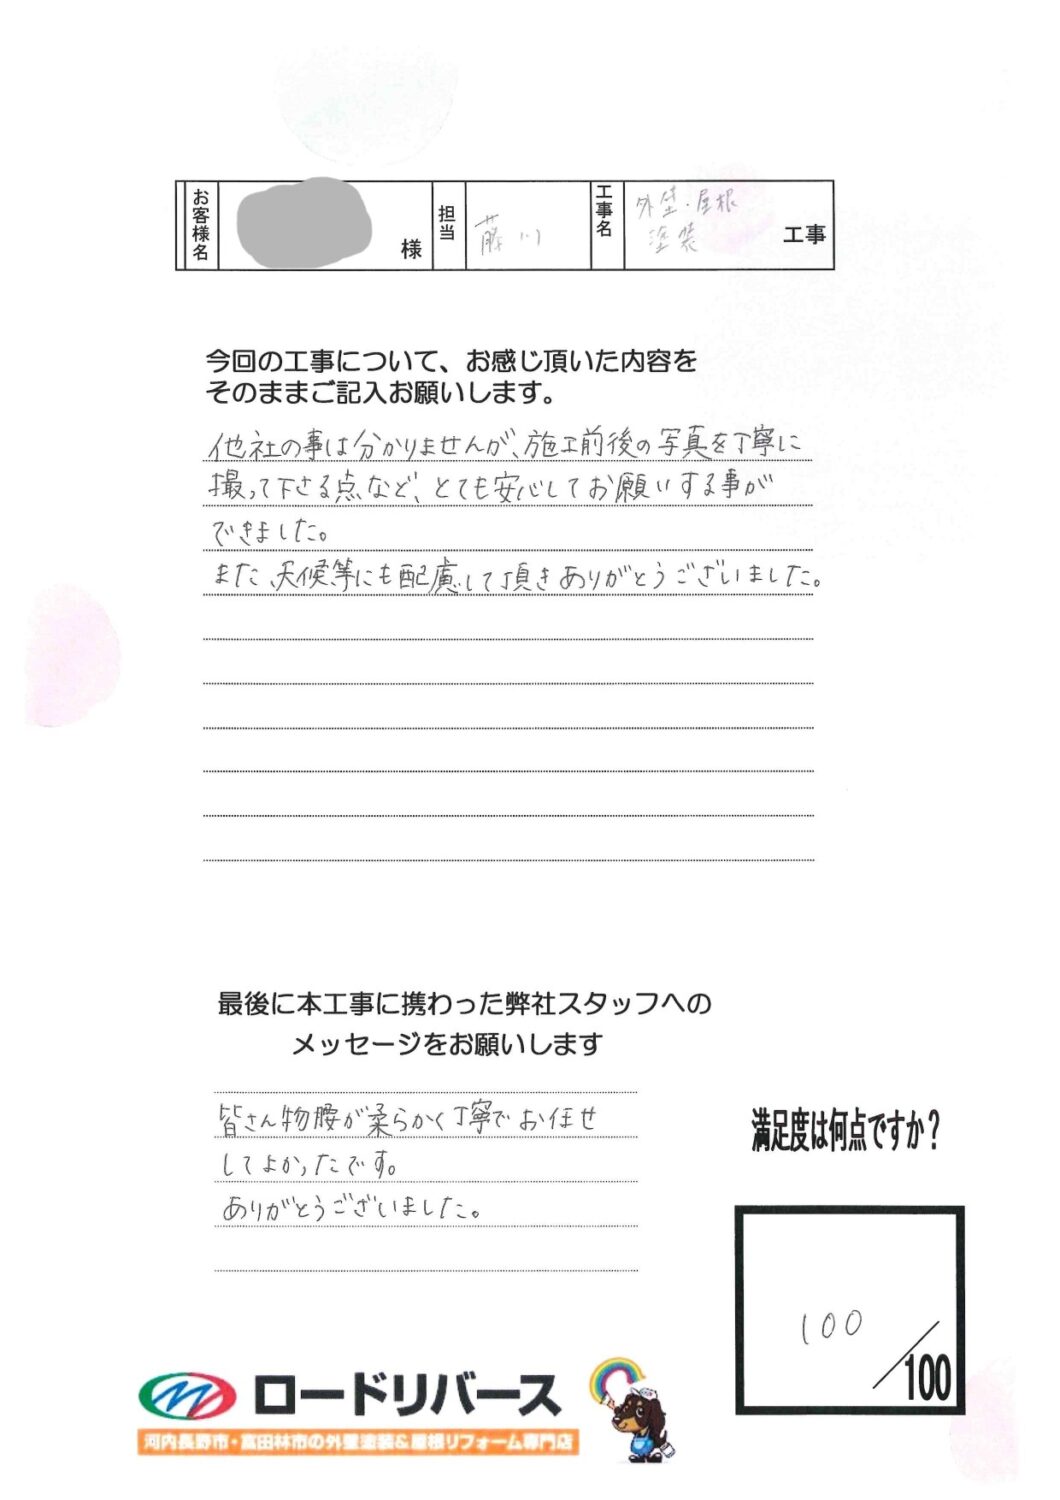 お客様名 様 担当 藤川 工事名 外壁・屋根
塗装 工事
今回の工事について、お感じ頂いた内容を
そのままご記入お願いします。
他社の事は分かりませんが、施工前後の写真を丁寧に
撮って下さる点など、とても安心してお願いする事が
できました。
また、天候等にも配慮して頂きありがとうございました。
最後に本工事に携わった弊社スタッフへの
メッセージをお願いします
皆さん物腰が柔らかく丁寧でお任せ
してよかったです。
ありがとうございました。
満足度は何点ですか?
100
/100
ロードリバース
河内長野市・富田林市の外壁塗装&屋根リフォーム専門店